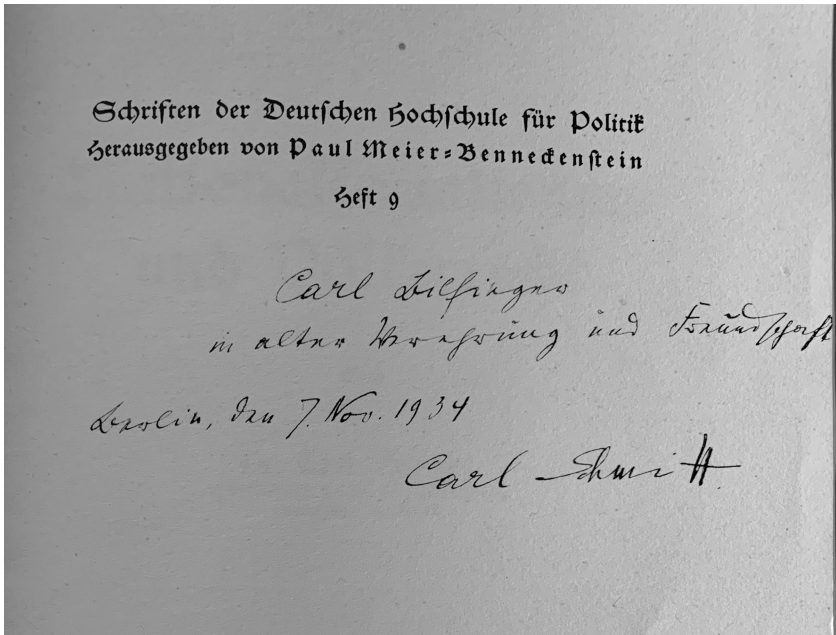 Schriften der Deutschen Hochschule für Politik
Herausgegeben von Paul Meier-Benneckenstein
Heft 9
Carl Bilfinger
in alter Verehrung und Freundschaft
Berlin, den 7. Nov. 1934
Carl Schmitt